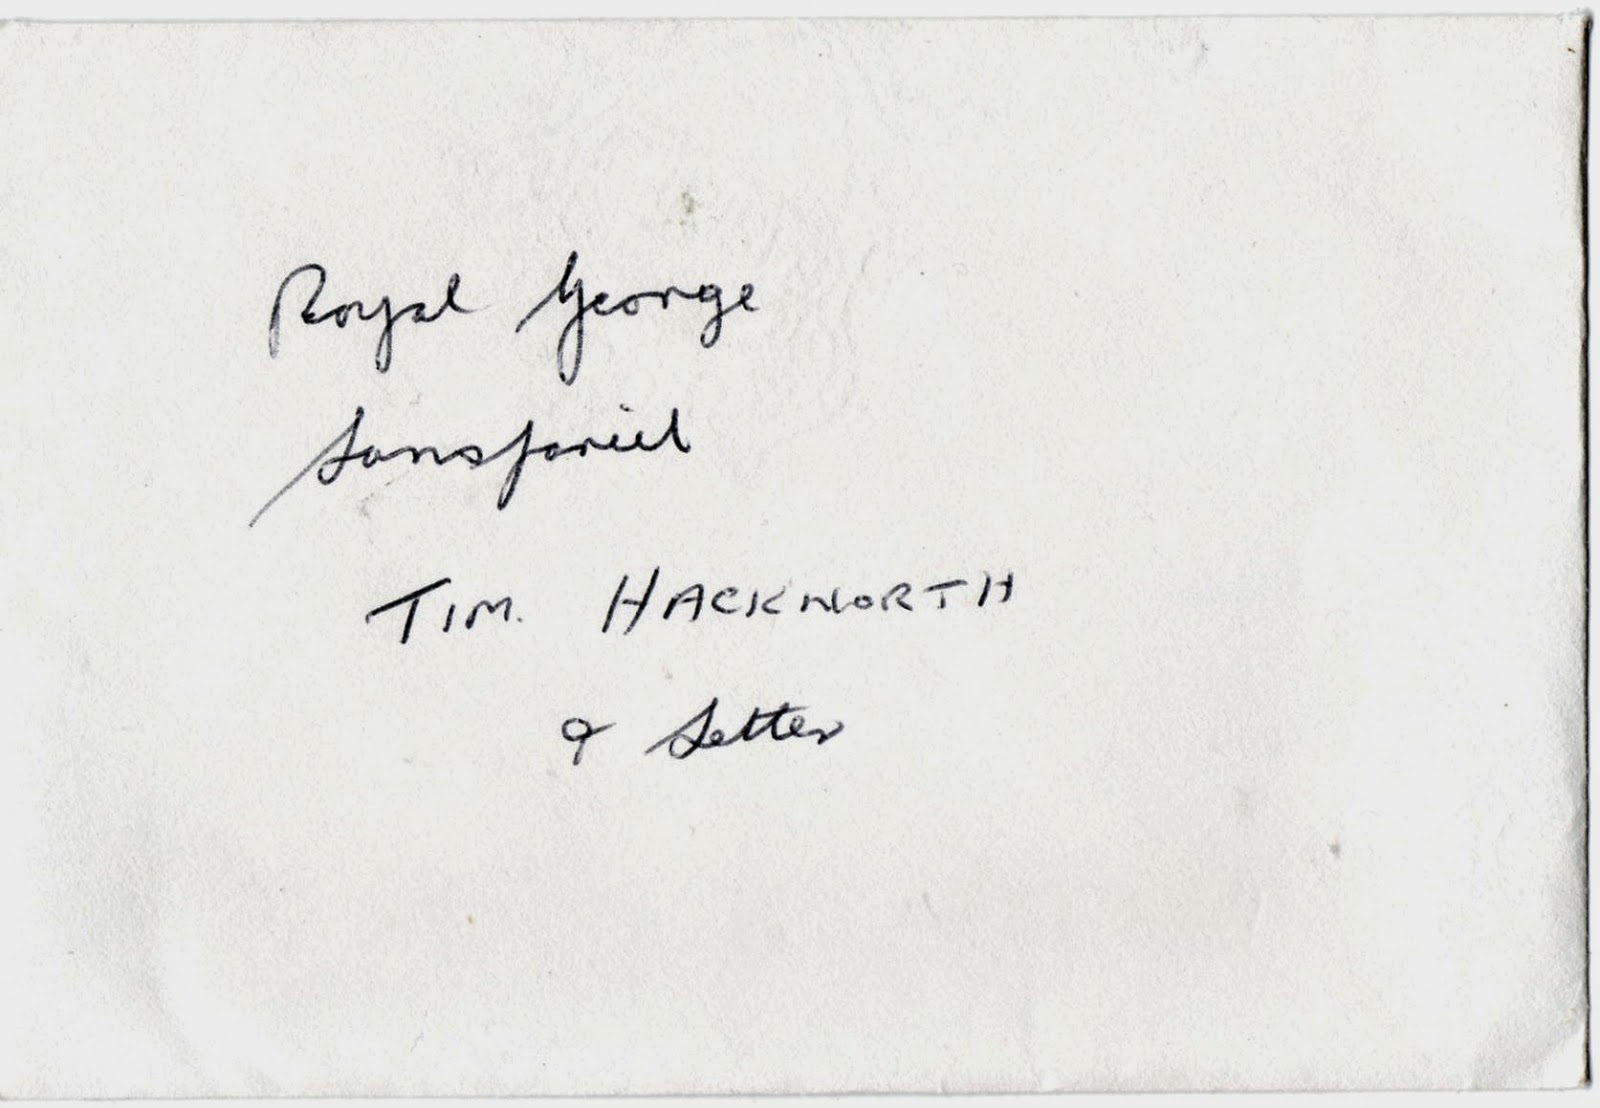 Royal George
Sanspariel
TIM. HACKWORTH
& Letter